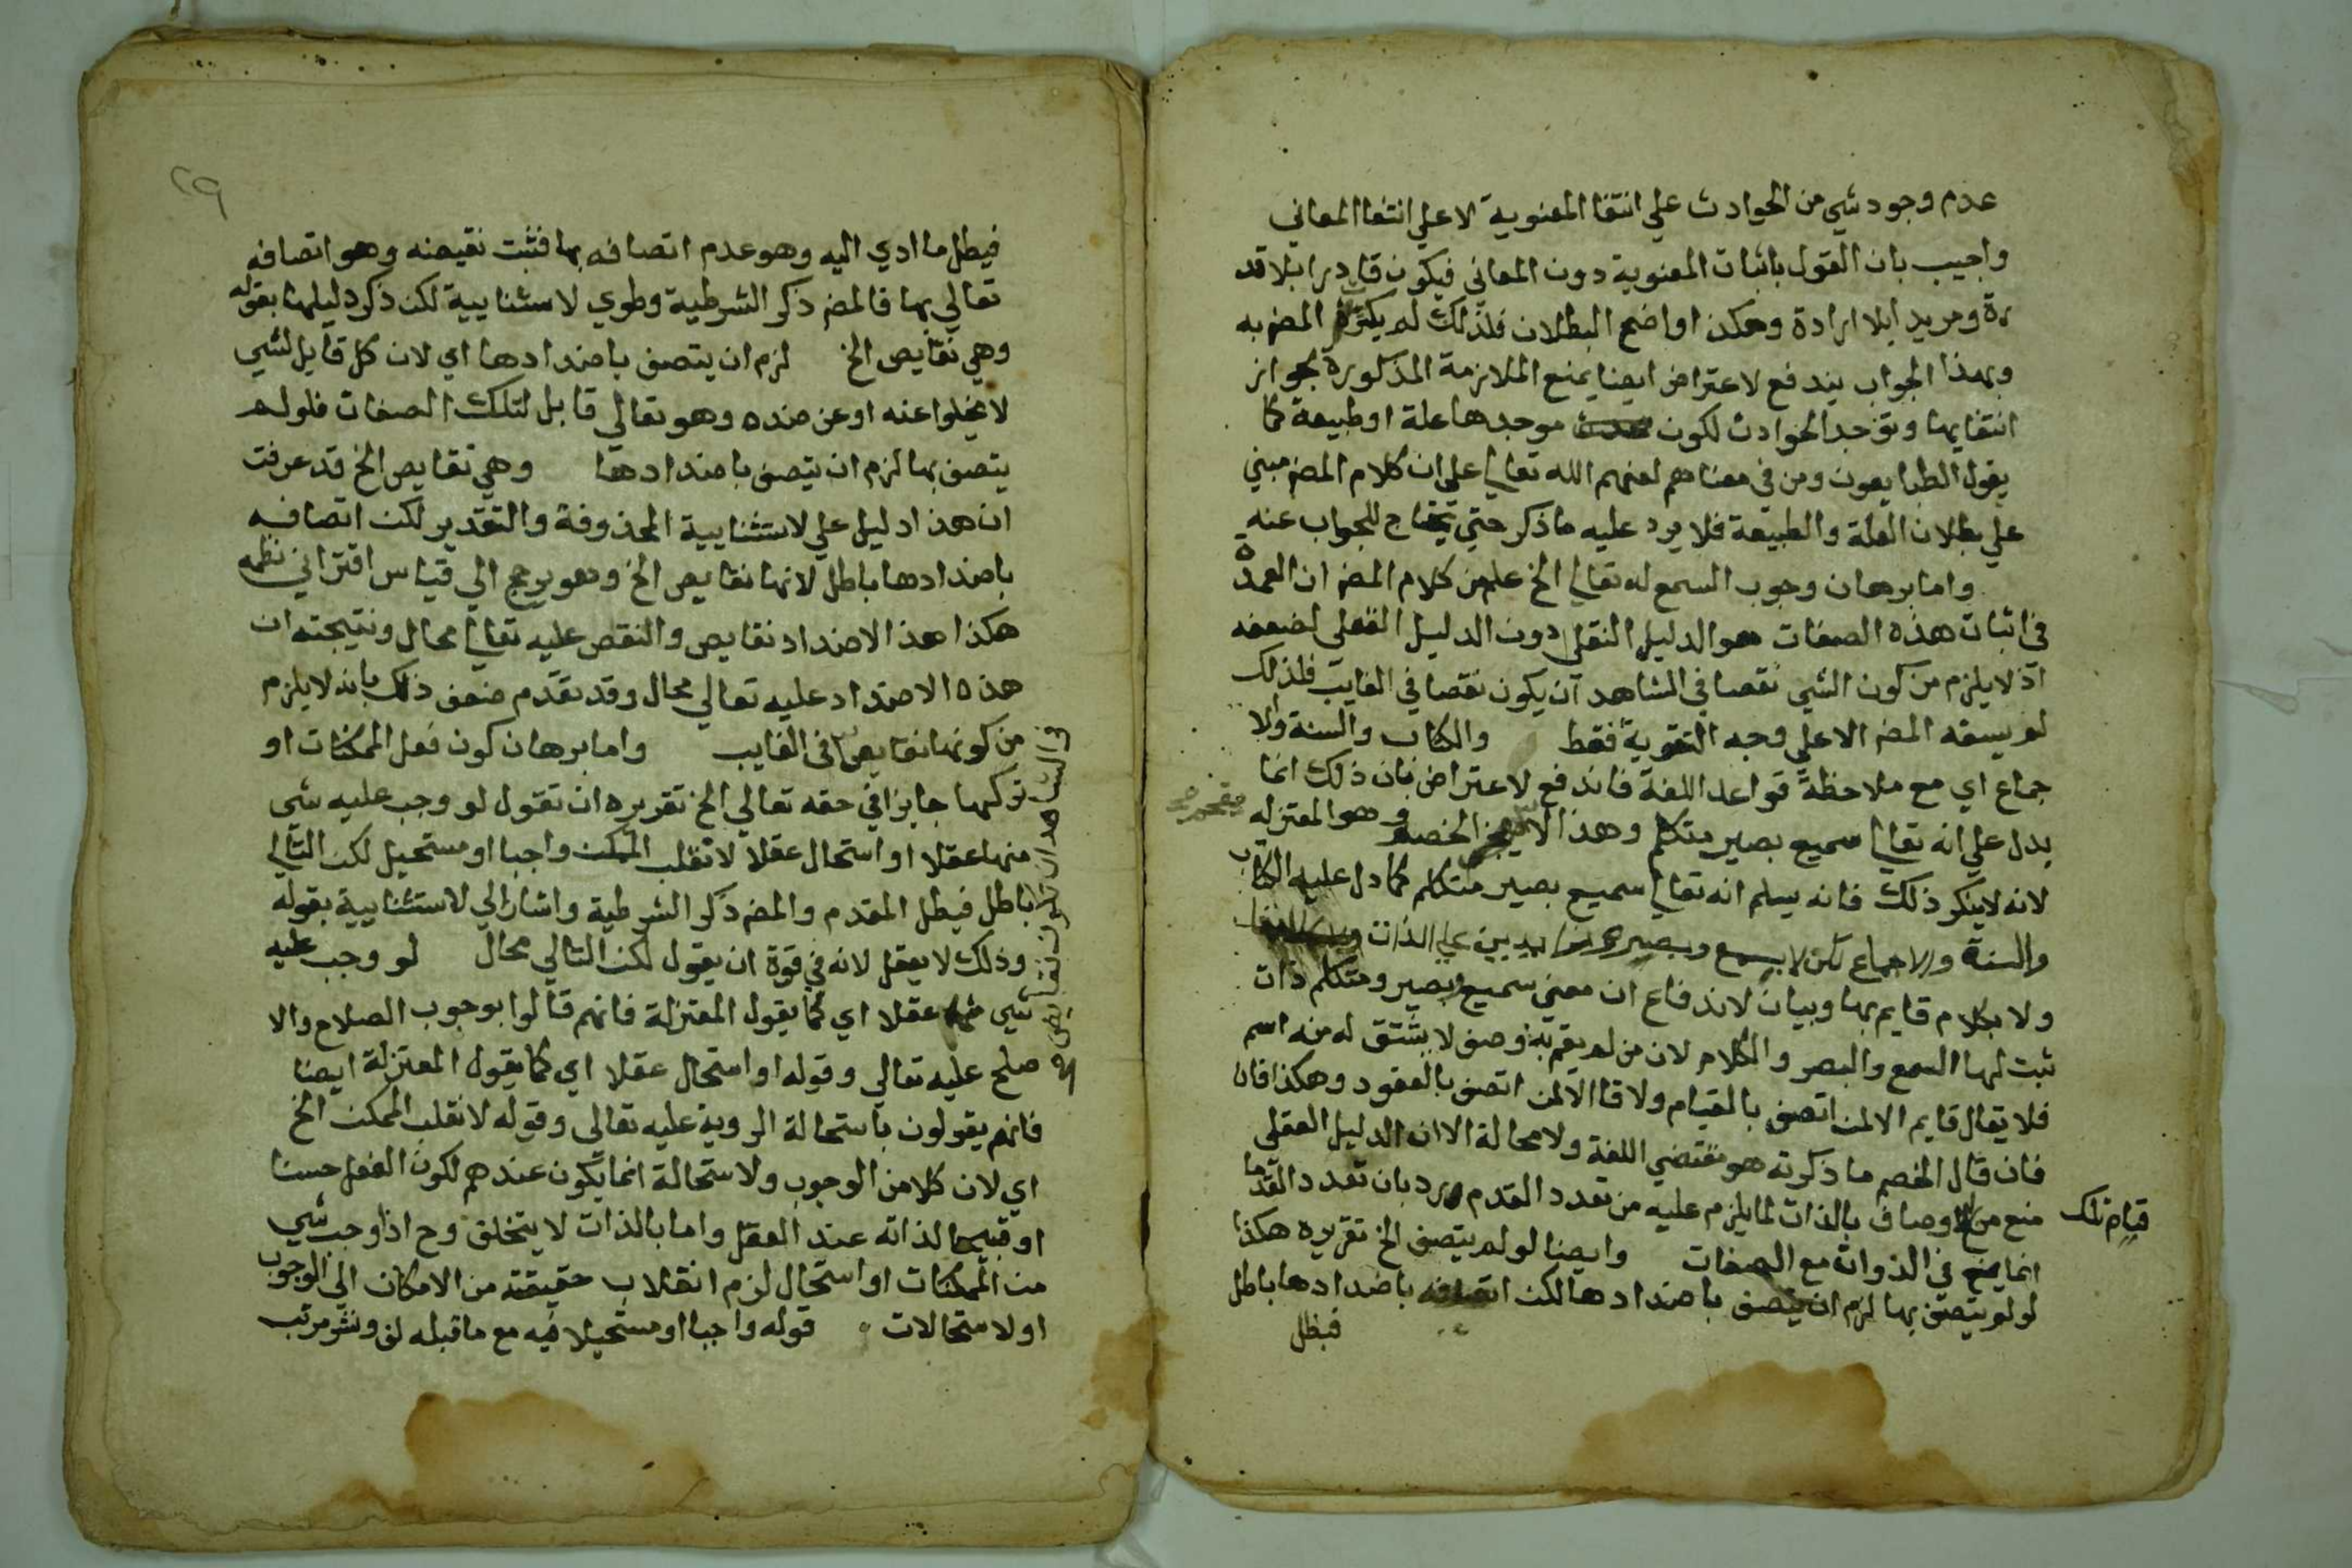 عدم وجود شي من الحوادث علي انتفا المعنوية لا علي انتفا المعاني
واجيب بان القول باثبات المعنوية دون المعاني فيكون قادرا بلا قد
رة ومريدا بلا ارادة وهكذا واضح البطلان فلذلك لم يكترث المصه به
وبهذا الجواب يندفع لاعتراض ايضا بمنع الملازمة المذكورة بجواز
انتفايها وتوجد الحوادث لكون موجدها علة او طبيعة كما
يقول الطبايعون ومن في معناهم لعنهم الله تعالي علي ان كلام المصه مبني
علي بطلان العلة والطبيعة فلا يرد عليه ما ذكر حتي يحتاج للجواب عنه
واما برهان وجوب السمع له تعالي الخ علم من كلام المصه ان العمدة
في اثبات هذه الصفات هو الدليل النقلي دون الدليل العقلي لضعفه
اذ لا يلزم من كون الشي نقصا في المشاهد ان يكون نقصا في الغايب فلذلك
لم يسقه المصه الا علي وجه التقوية فقط والكتاب والسنة ولا
جماع اي مع ملاحظة قواعد اللغة فاندفع لاعتراض فان ذلك انما
يدل علي انه تعالي سميع بصير متكلم وهذا لا الخصم وهو المعتزله
لانه لا ينكر ذلك فانه يسلم انه تعالي سميع بصير متكلم كما دل عليه الكتاب
والسنة والاجماع لكن لا بسمع وبصير زايدين علي الذات
ولا بكلام قايم بها وبيان لاندفاع ان معني سميع وبصير ومتكلم ذات
ثبت لها السمع والبصر والكلام لان من لم يقم به وصف لا يشتق له منه اسم
فلا يقال قايم الا لمن اتصف بالقيام ولا قاعد الا لمن اتصف بالقعود وهكذا فان
فان قال الخصم ما ذكرته هو مقتضي اللغة ولا محالة الا ان الدليل العقلي
منع من الاوصاف بالذات لما يلزم عليه من تعدد القدم ورد بان تعدد القدما
قيام تلك
انما يمنع في الذوات مع الصفات وايضا لو لم يتصف الخ تقريره هكذا
لو لم يتصف بها لزم ان يتصف باضدادها لكن اتصافه باضدادها باطل
فبطل
٢٩
فبطل ما ادي اليه وهو عدم اتصافه بها فثبت نقيضه وهو اتصافه
تعالي بها فالمصه ذكر الشرطية وطوي لاستثنايية لكن ذكر دليلها بقوله
وهي نقايص الخ لزم ان يتصف باضدادها اي لان كل قابل لشي
لا يخلوا عنه او عن ضده وهو تعالي قابل لتلك الصفات فلو لم
يتصف بها لزم ان يتصف باضدادها وهي نقايص الخ قد عرفت
ان هذا دليل علي لاستثنايية المحذوفة والتقدير لكن اتصافه
باضدادها باطل لانها نقايص الخ وهو يرجع الي قياس اقتراني نظمه
هكذا هذ الاضداد نقايص والنقص عليه تعالي محال ونتيجته ان
هذه الاضداد عليه تعالي محال وقد تقدم ضعف ذلك بانه لا يلزم
من كونها نقايص في الغايب واما برهان كون فعل الممكنات او
تركها جايزا في حقه تعالي الخ تقريره ان تقول لو وجب عليه شي
منها عقلا او استحال عقلا لانقلب الممكن واجبا او مستحيل لكن التالي
باطل فبطل المقدم والمصه ذكر الشرطية واشار الي لاستثنايية بقوله
وذلك لا يعقل لانه في قوة ان يقول لكن التالي محال لو وجب عليه
شي منها عقلا اي كما يقول المعتزلة فانهم قالوا بوجوب الصلاح والا
صلح عليه تعالي وقوله او استحال عقلا اي كما يقول المعتزلة ايضا
فانهم يقولون باستحالة الروية عليه تعالي وقوله لانقلب الممكن الخ
اي لان كلا من الوجوب ولاستحالة انما يكون عندهم لكون الفعل حسنا
او قبيحا لذاته عند العقل واما بالذات لا يتخلف وح اذا وجب شي
من الممكنات او استحال لزم انقلاب حقيقته من الامكان الي الوجوب
او لاستحالات قوله واجبا او مستحيلا فيه مع ما قبله لف ونشر مرتب